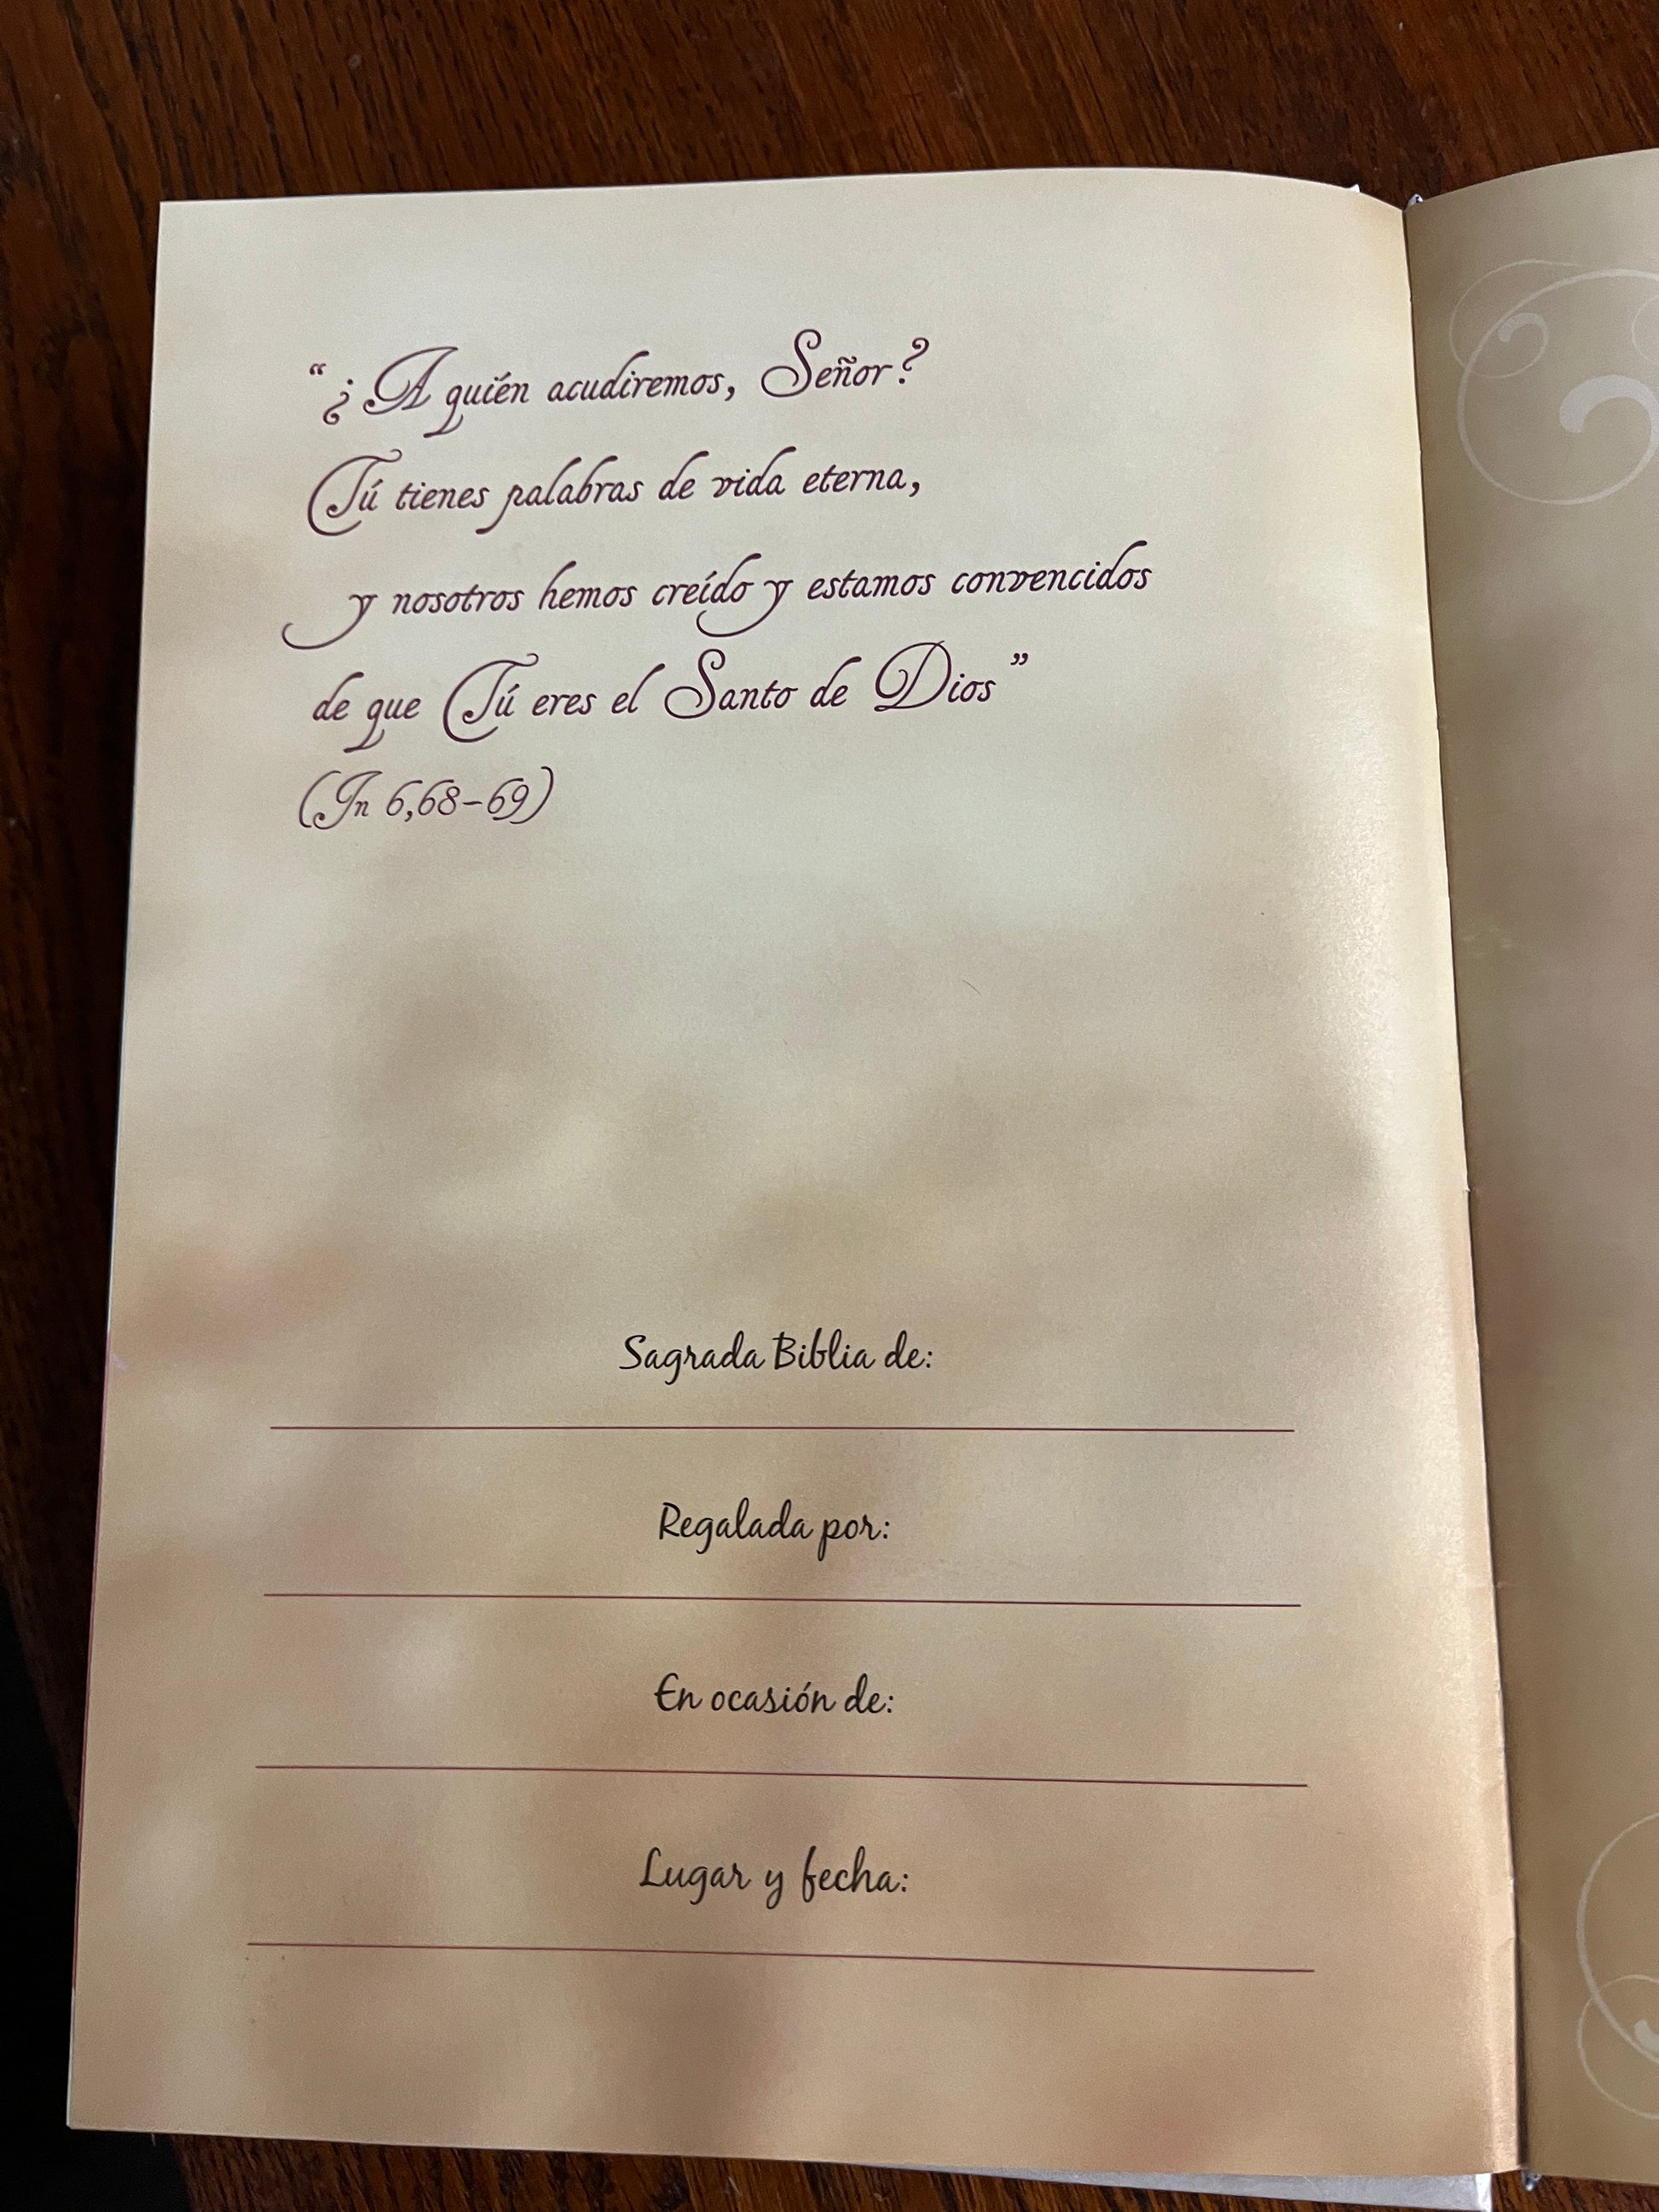 “¿A quién acudiremos, Señor?
Tú tienes palabras de vida eterna,
y nosotros hemos creído y estamos convencidos
de que Tú eres el Santo de Dios”
(Jn 6,68-69)
Sagrada Biblia de:
Regalada por:
En ocasión de:
Lugar y fecha: